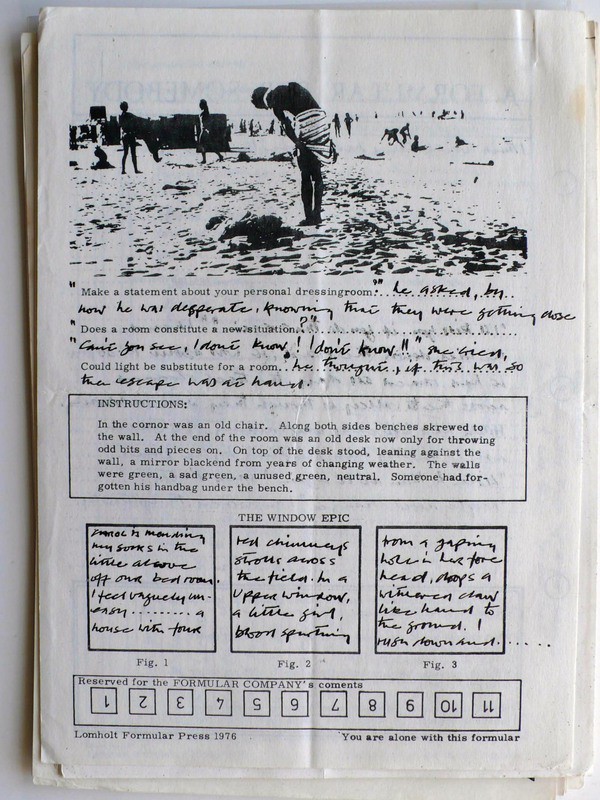 "Make a statement about your personal dressingroom?" he asked, by
now he was desperate, knowing that they were getting close
"Does a room constitute a new situation?"
"Can't you see, I dont know! I dont know!!" she cried,
Could light be substitute for a room.. he thought, if this was so
the escape was at hand.
INSTRUCTIONS:
In the cornor was an old chair. Along both sides benches skrewed to
the wall. At the end of the room was an old desk now only for throwing
odd bits and pieces on. On top of the desk stood, leaning against the
wall, a mirror blackend from years of changing weather. The walls
were green, a sad green, a unused green, neutral. Someone had for-
gotten his handbag under the bench.
THE WINDOW EPIC
is mending
my socks in the
little alcove
off our bedroom.
I feel vaguely un-
easy ......... a
house with four
red chimneys
strolls across
the field. In a
upper window,
a little girl,
blood spurting
from a gaping
hole in her fore
head, drops a
withered claw
like hand to
the ground. I
rush down and.......
Fig. 1
Fig. 2
Fig. 3
Reserved for the FORMULAR COMPANY's coments
1 2 3 4 5 6 7 8 9 10 11
Lomholt Formular Press 1976
You are alone with this formular